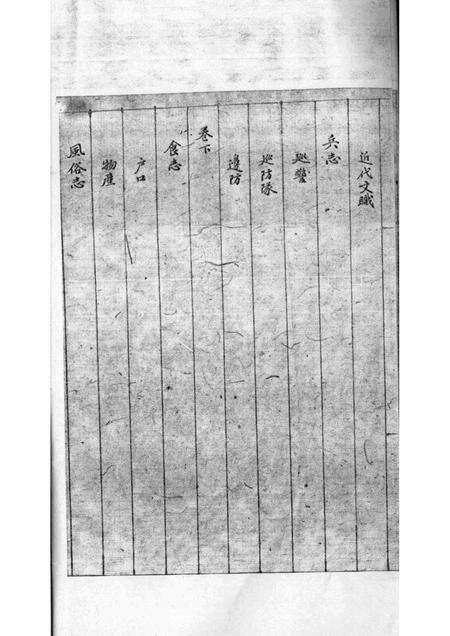 近代文職
兵志
巡警
巡防隊
邊防
卷下
食志
户口
物產
風俗志